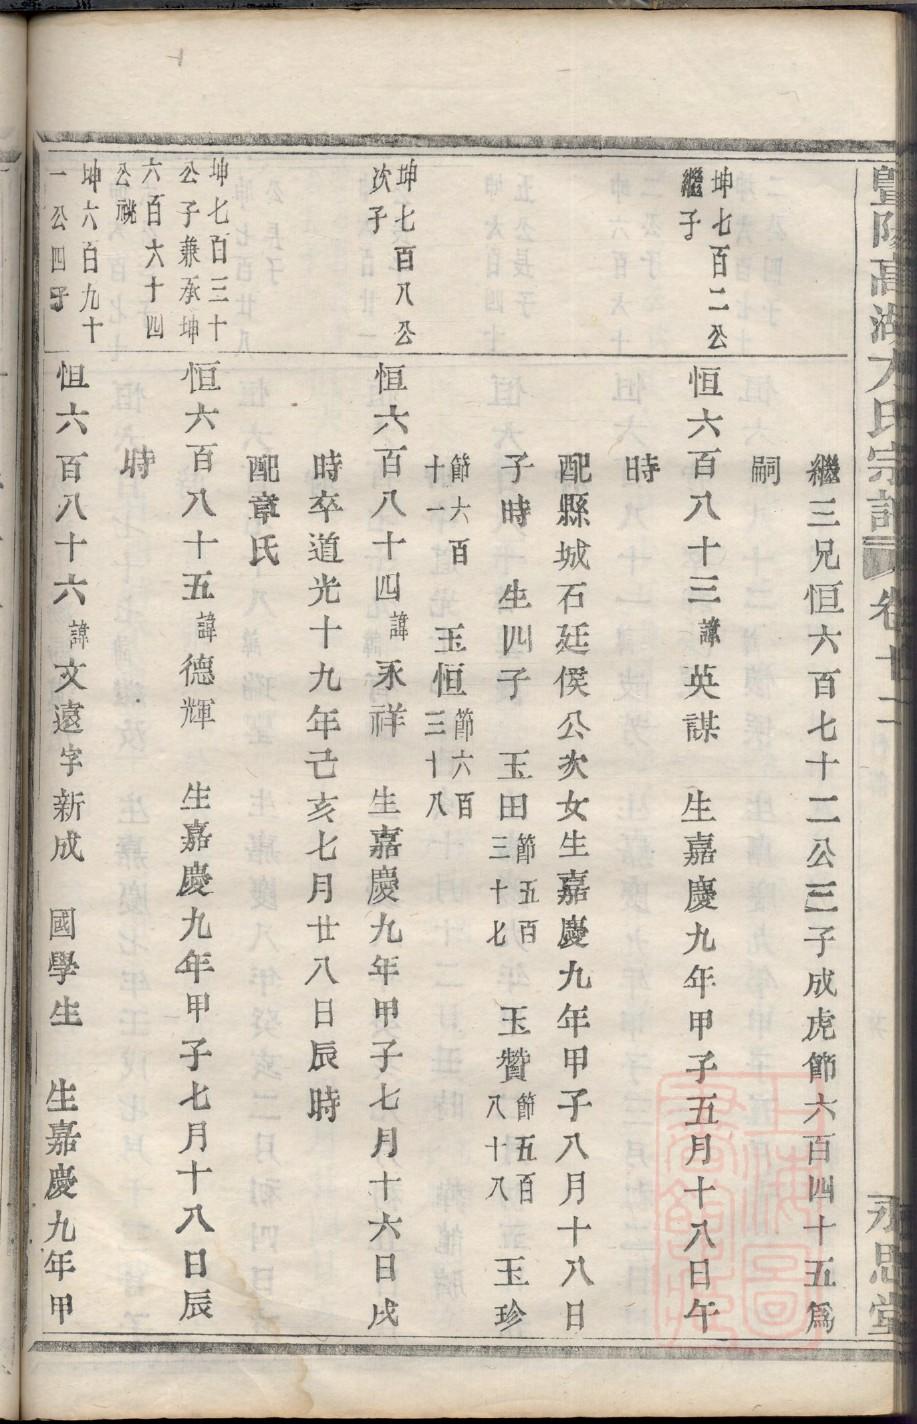 暨陽高湖方氏宗譜 卷廿二 永思堂
繼三兄恒六百七十二公三子成虎節六百四十五爲
嗣
坤七百二公
繼子
恒六百八十三諱英謀 生嘉慶九年甲子五月十八日午
時
配縣城石廷侯公次女生嘉慶九年甲子八月十八日
子時 生四子 玉田節五百三十七 玉贊節五百八十八 玉珍
節六百十一 玉恒節六百三十八
坤七百八公
次子
恒六百八十四諱永祥 生嘉慶九年甲子七月十六日戌
時卒道光十九年己亥七月廿八日辰時
配章氏
坤七百三十
公子兼承坤
六百六十四
公祧
恒六百八十五諱德輝 生嘉慶九年甲子七月十八日辰
時
坤六百九十
一公四子
恒六百八十六諱文遠字新成 國學生 生嘉慶九年甲